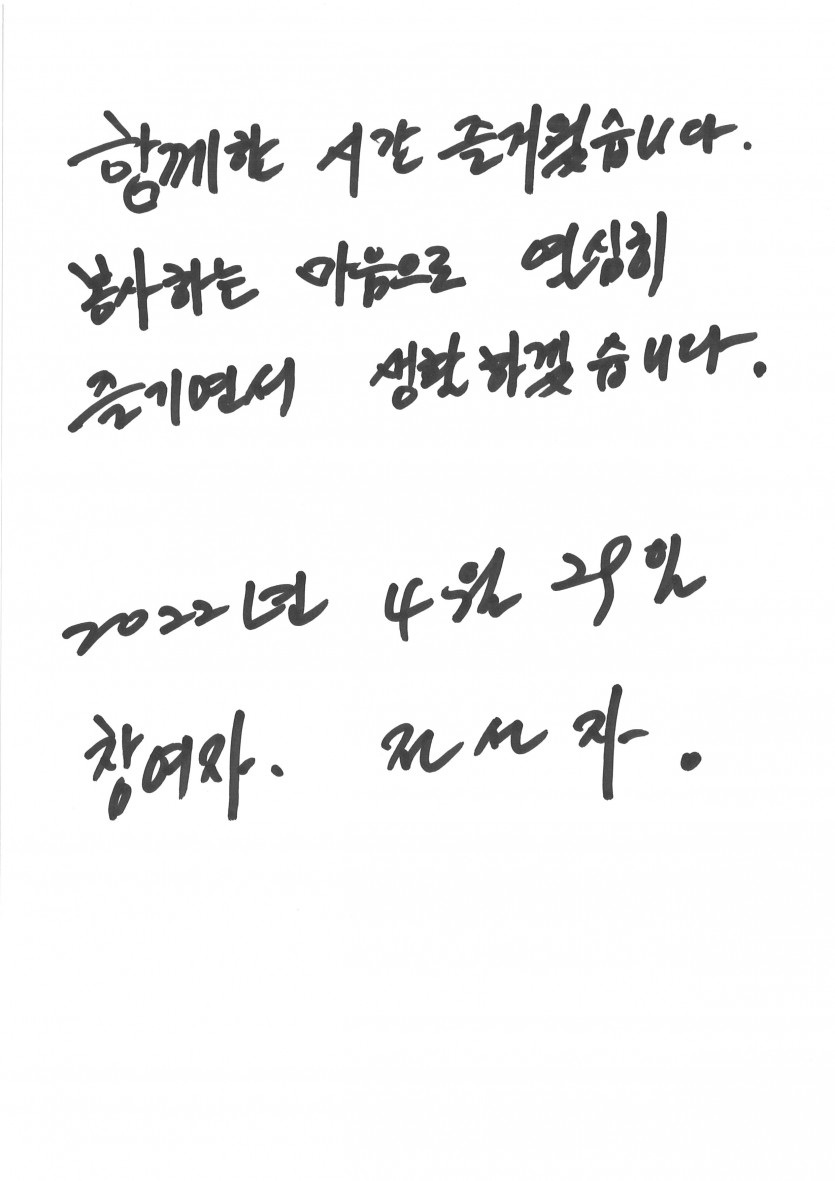 함께한 시간 즐거웠습니다.
봉사하는 마음으로 열심히
즐기면서 생활하겠습니다.
2022년 4월 29일
참여자. 전선자.